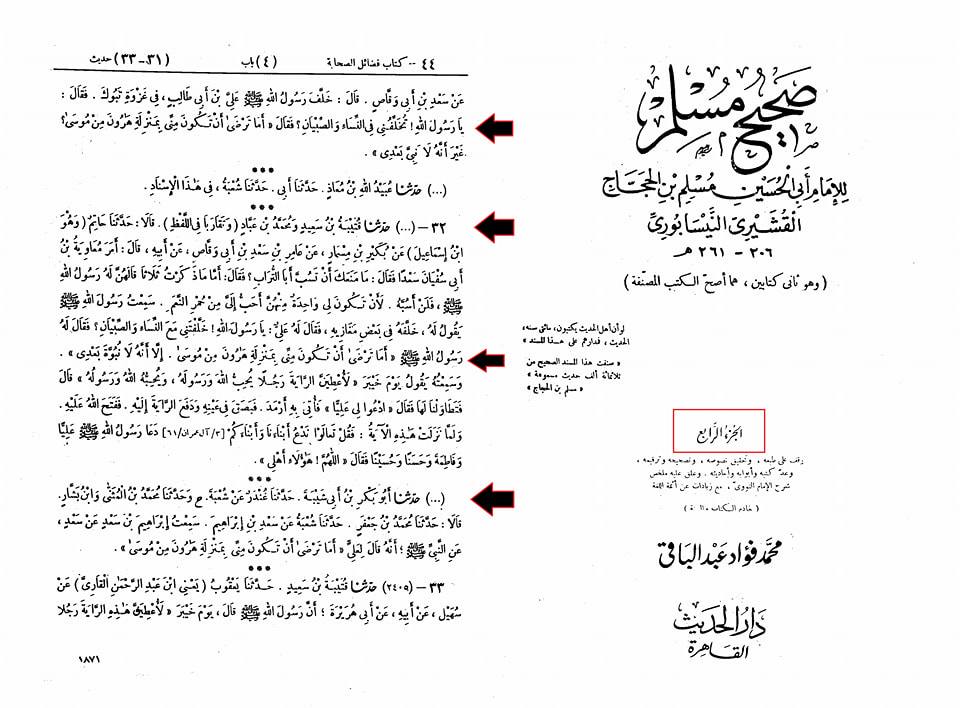 صحيح مسلم
للإمام أبي الحسين مسلم بن الحجاج
القشيري النيسابوري
٢٠٦ - ٢٦١ هـ
( وهو ثاني كتابين ، هما أصح الكتب المصنفة )
لو أن أهل الحديث يكتبون ، مائتي سنة ،
الحديث ، فمدارهم على هذا المسند »
« صنفت هذا المسند الصحيح من
ثلاثمائة ألف حديث مسموعة »
« مسلم بن الحجاج »
الجزء الرابع
وقف على طبعه ، وتحقيق نصوصه ، وتصحيحه وترقيمه ،
وعدّ كتبه وأبوابه وأحاديثه . وعلق عليه ملخص
شرح الإمام النووي ، مع زيادات عن أئمة اللغة
( خادم الكتاب والسنة )
محمد فؤاد عبد الباقي
دار الحديث
القاهرة
٤٤ -- كتاب فضائل الصحابة (٤) باب (٣١-٣٣) حديث
عَنْ سَعْدِ بْنِ أَبِي وَقَّاصٍ . قَالَ : خَلَّفَ رَسُولُ اللهِ ﷺ عَلِيَّ بْنَ أَبِي طَالِبٍ ، فِي غَزْوَةِ تَبُوكَ . فَقَالَ :
يَا رَسُولَ اللهِ ! تُخَلِّفُنِي فِي النِّسَاءِ وَالصِّبْيَانِ؟ فَقَالَ « أَمَا تَرْضَىٰ أَنْ تَكُونَ مِنِّي بِمَنْزِلَةِ هَرُونَ مِنْ مُوسَىٰ؟
غَيْرَ أَنَّهُ لَا نَبِيَّ بَعْدِي » .
(...) حَدَّثَنَا عُبَيْدُ اللهِ بْنُ مُعَاذٍ . حَدَّثَنَا أَبِي . حَدَّثَنَا شُعْبَةُ ، فِي هَذَا الْإِسْنَادِ .
٣٢ - (...) حَدَّثَنَا قُتَيْبَةُ بْنُ سَعِيدٍ وَمُحَمَّدُ بْنُ عَبَّادٍ ( وَتَقَارَبَا فِي اللَّفْظِ ) . قَالَا : حَدَّثَنَا حَاتِمٌ ( وَهُوَ
ابْنُ إِسْمَاعِيلَ ) عَنْ بُكَيْرِ بْنِ مِسْمَارٍ ، عَنْ عَامِرِ بْنِ سَعْدِ بْنِ أَبِي وَقَّاصٍ ، عَنْ أَبِيهِ ، قَالَ : أَمَرَ مُعَاوِيَةُ بْنُ
أَبِي سُفْيَانَ سَعْدًا فَقَالَ : مَا مَنَعَكَ أَنْ تَسُبَّ أَبَا التُّرَابِ ؟ فَقَالَ : أَمَّا مَا ذَكَرْتُ ثَلَاثًا قَالَهُنَّ لَهُ رَسُولُ اللهِ
ﷺ ، فَلَنْ أَسُبَّهُ . لَأَنْ تَكُونَ لِي وَاحِدَةٌ مِنْهُنَّ أَحَبُّ إِلَيَّ مِنْ حُمْرِ النَّعَمِ . سَمِعْتُ رَسُولَ اللهِ ﷺ
يَقُولُ لَهُ ، خَلَّفَهُ فِي بَعْضِ مَغَازِيهِ ، فَقَالَ لَهُ عَلِيٌّ : يَا رَسُولَ اللهِ ! خَلَّفْتَنِي مَعَ النِّسَاءِ وَالصِّبْيَانِ؟ فَقَالَ لَهُ
رَسُولُ اللهِ ﷺ « أَمَا تَرْضَىٰ أَنْ تَكُونَ مِنِّي بِمَنْزِلَةِ هَرُونَ مِنْ مُوسَىٰ . إِلَّا أَنَّهُ لَا نُبُوَّةَ بَعْدِي » .
وَسَمِعْتُهُ يَقُولُ يَوْمَ خَيْبَرَ « لَأُعْطِيَنَّ الرَّايَةَ رَجُلًا يُحِبُّ اللهَ وَرَسُولَهُ ، وَيُحِبُّهُ اللهُ وَرَسُولُهُ » قَالَ
فَتَطَاوَلْنَا لَهَا فَقَالَ « ادْعُوا لِي عَلِيًّا » فَأُتِيَ بِهِ أَرْمَدَ . فَبَصَقَ فِي عَيْنِهِ وَدَفَعَ الرَّايَةَ إِلَيْهِ . فَفَتَحَ اللهُ عَلَيْهِ .
وَلَمَّا نَزَلَتْ هَذِهِ الْآيَةُ : فَقُلْ تَعَالَوْا نَدْعُ أَبْنَاءَنَا وَأَبْنَاءَكُمْ [٣/آل عمران/٦١] دَعَا رَسُولُ اللهِ ﷺ عَلِيًّا
وَفَاطِمَةَ وَحَسَنًا وَحُسَيْنًا فَقَالَ « اللّٰهُمَّ ! هَؤُلَاءِ أَهْلِي » .
(...) حَدَّثَنَا أَبُو بَكْرِ بْنُ أَبِي شَيْبَةَ . حَدَّثَنَا غُنْدَرٌ عَنْ شُعْبَةَ . ح وَحَدَّثَنَا مُحَمَّدُ بْنُ الْمُثَنَّىٰ وَابْنُ بَشَّارٍ .
قَالَا : حَدَّثَنَا مُحَمَّدُ بْنُ جَعْفَرٍ . حَدَّثَنَا شُعْبَةُ عَنْ سَعْدِ بْنِ إِبْرَاهِيمَ . سَمِعْتُ إِبْرَاهِيمَ بْنَ سَعْدٍ عَنْ سَعْدٍ ،
عَنِ النَّبِيِّ ﷺ ؛ أَنَّهُ قَالَ لِعَلِيٍّ « أَمَا تَرْضَىٰ أَنْ تَكُونَ مِنِّي بِمَنْزِلَةِ هَرُونَ مِنْ مُوسَىٰ » .
٣٣ - (٢٤٠٥) حَدَّثَنَا قُتَيْبَةُ بْنُ سَعِيدٍ . حَدَّثَنَا يَعْقُوبُ ( يَعْنِي ابْنَ عَبْدِ الرَّحْمَنِ الْقَارِيَّ ) عَنْ
سُهَيْلٍ ، عَنْ أَبِيهِ ، عَنْ أَبِي هُرَيْرَةَ ؛ أَنَّ رَسُولَ اللهِ ﷺ قَالَ ، يَوْمَ خَيْبَرَ « لَأُعْطِيَنَّ هَذِهِ الرَّايَةَ رَجُلًا
١٨٧١